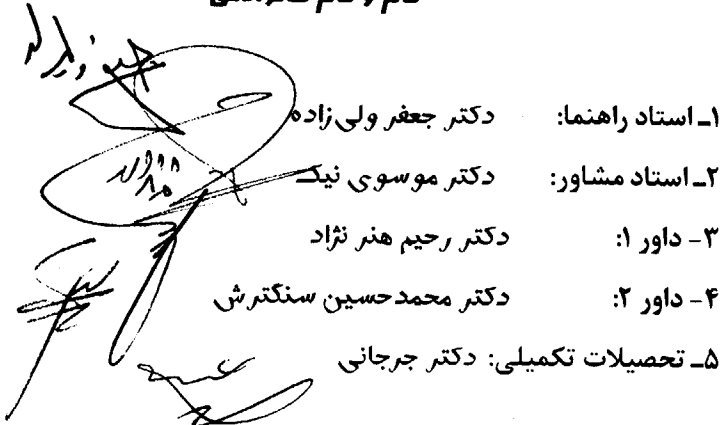 ۱ـ استاد راهنما: دکتر جعفر ولی‌زاده
۲ـ استاد مشاور: دکتر موسوی نیک
۳- داور ۱: دکتر رحیم هنر نژاد
۴- داور ۲: دکتر محمدحسین سنگترش
۵ـ تحصیلات تکمیلی: دکتر جرجانی